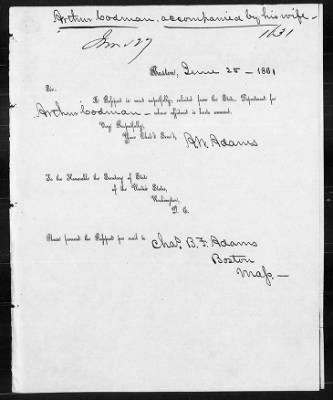 Arthur Codman. accompanied by his wife.
1631
Boston, June 25 - 1861
Sir:
A Passport is most respectfully solicited from the State Department for
Arthur Codman - whose affidavit is hereto annexed.
Very Respectfully,
Your Obed't Serv't,
B.F. Adams
To the Honorable the Secretary of State
of the United States,
Washington,
D. C.
Please forward the Passport per mail to
Chas. B. F. Adams
Boston
Mass. -